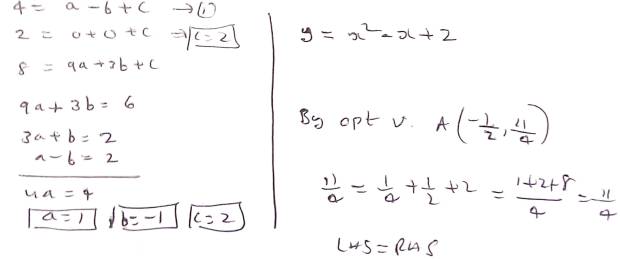 4 = a - b + c → ①
2 = 0 + 0 + c ⇒ c = 2
8 = 9a + 3b + c
9a + 3b = 6
3a + b = 2
a - b = 2
4a = 4
a = 1 b = -1 c = 2
y = x² - x + 2
By opt v. A(-1/2, 11/4)
11/4 = 1/4 + 1/2 + 2 = 1+2+8/4 = 11/4
LHS = RHS